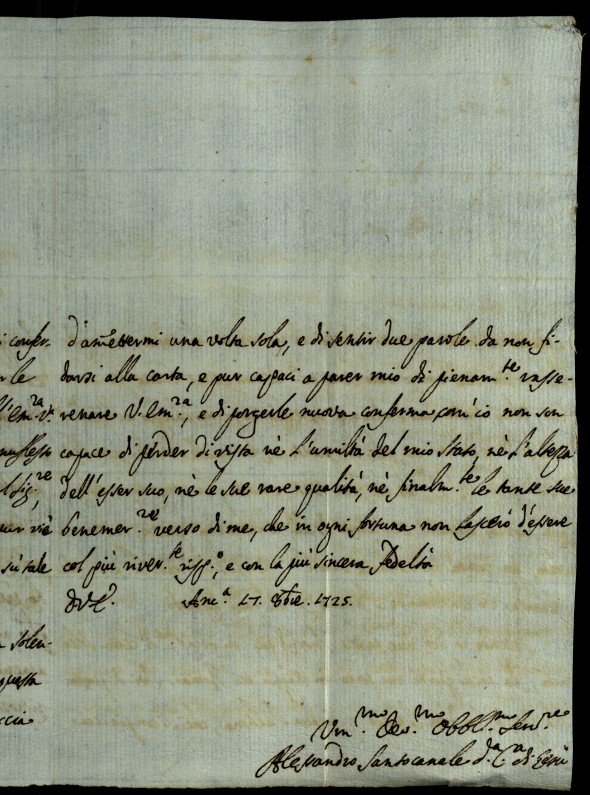 i confer- d'am̃ettermi una volta sola, e di sentir due parole da non fi-
r le darsi alla carta, e pur capaci a parer mio di pienam.te rasse-
l'Em.za V.ra renare V. Em.za, e di porgerle nuova conferma com'io non son
capace di perder di vista nè l'umiltà del mio stato, nè l'altezza
l Sig.re dell'esser suo, nè le sue rare qualità, nè finalm.te le tante sue
pur viè benemer.ze verso di me, che in ogni fortuna non lascerò d'essere
sù tale col più river.te risp.o, e con la più sincera fedeltà
Di V. E. Anc.a 17. 8bre. 1725.
solen-
questa
ccia
Um.mo Dev.mo Obbl.mo Serv.re
Alessandro Santocanale d.a C.a di Gesù